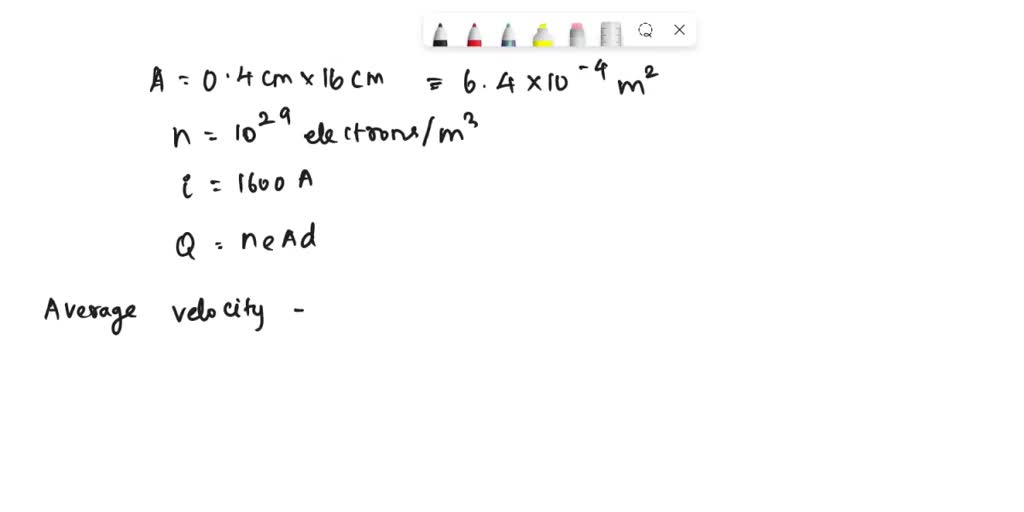 A = 0.4 cm × 16 cm = 6.4 × 10⁻⁴ m²
n = 10²⁹ electrons/m³
i = 1600 A
Q = neAd
Average velocity -